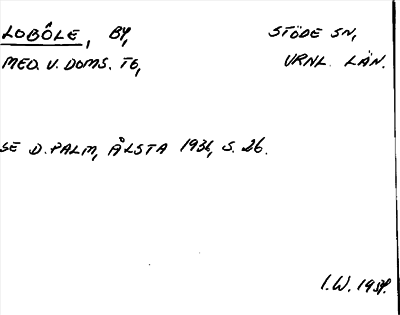 LOBÔLE, BY, STÖDE SN,
MED. V. DOMS. TG, VRNL. LÄN.
SE D. PALM, ÅLSTA 1931, S. 26.
I.W. 1959.